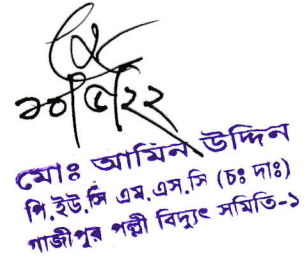 ২০/৫/২২
মোঃ আমিন উদ্দিন
পি.ইউ.সি এম.এস.সি (চঃ দাঃ)
গাজীপুর পল্লী বিদ্যুৎ সমিতি-১